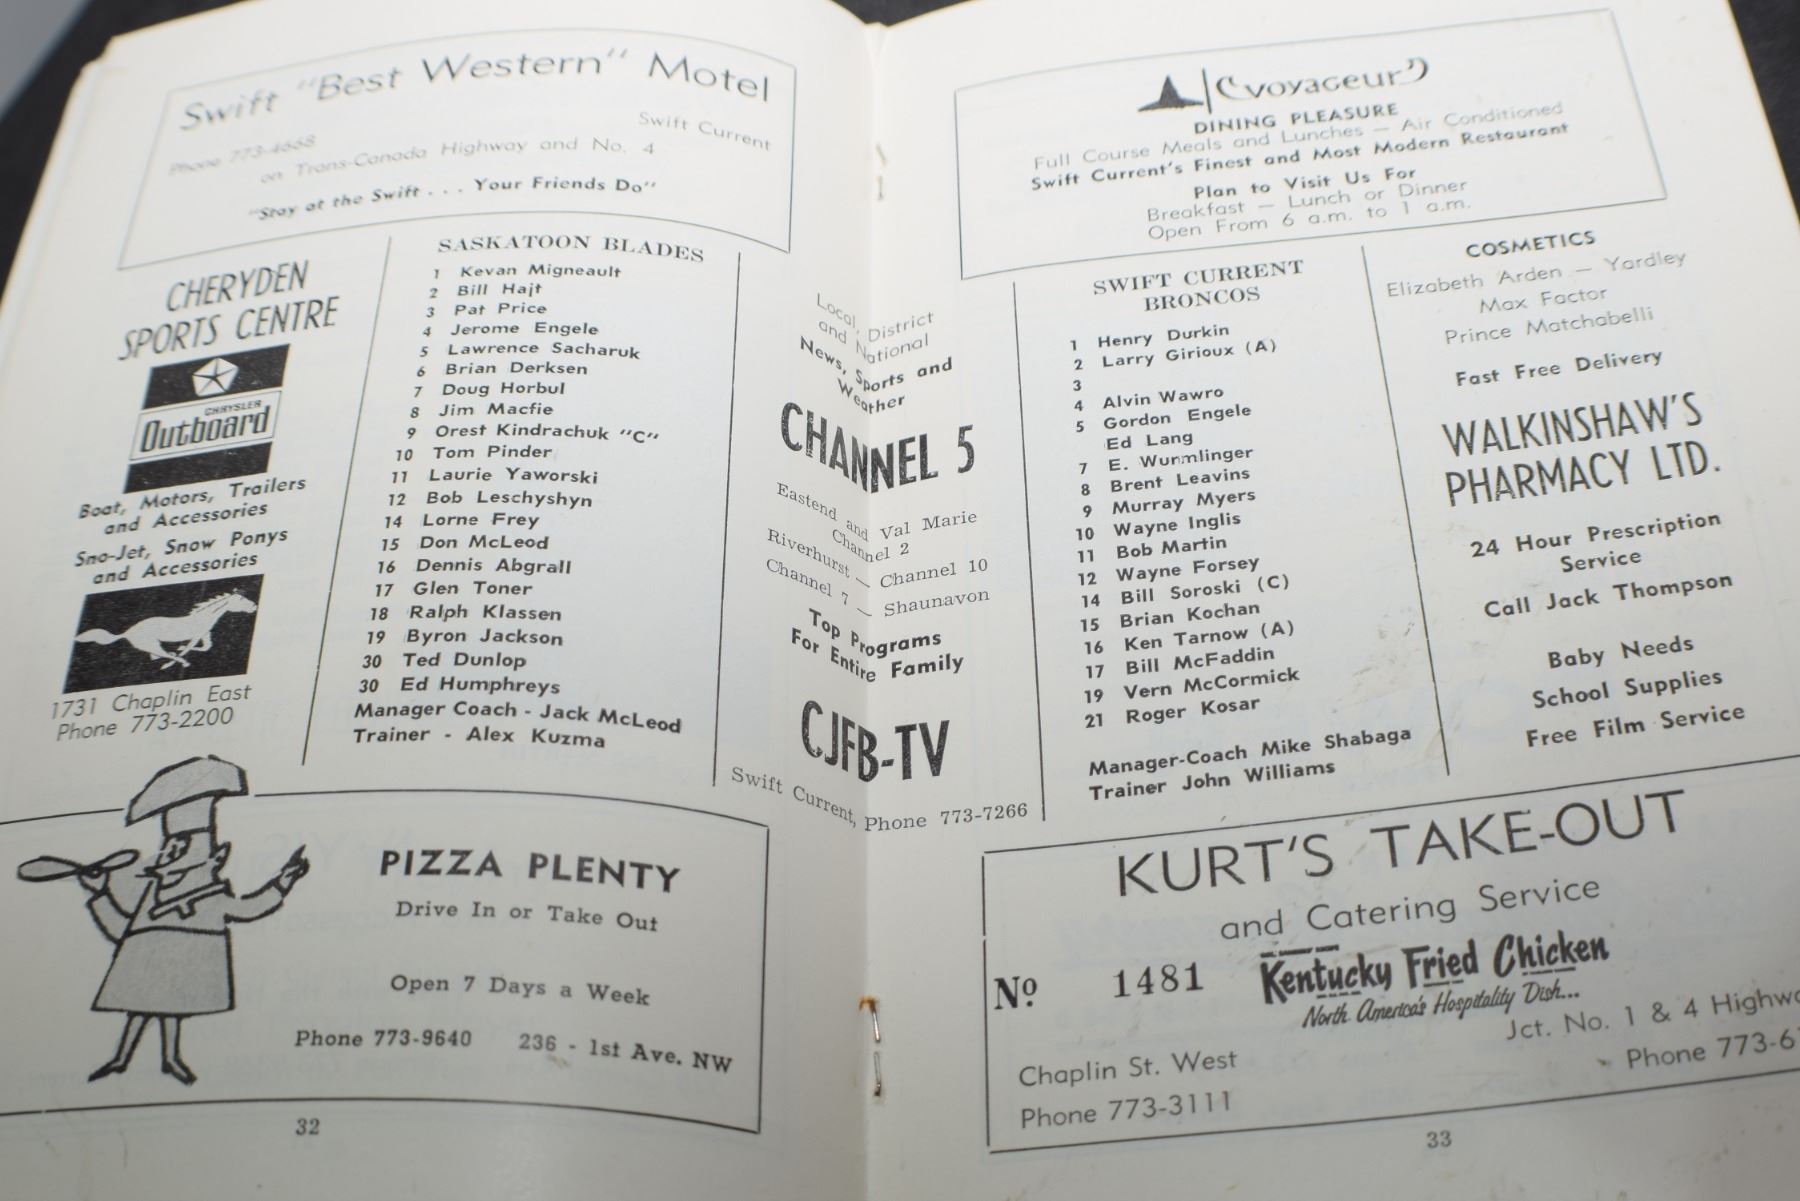 Swift "Best Western" Motel
Phone 773-4668
Swift Current
on Trans-Canada Highway and No. 4
"Stay at the Swift . . . Your Friends Do"
CHERYDEN
SPORTS CENTRE
CHRYSLER
Outboard
Boat, Motors, Trailers
and Accessories
Sno-Jet, Snow Ponys
and Accessories
1731 Chaplin East
Phone 773-2200
SASKATOON BLADES
1 Kevan Migneault
2 Bill Hajt
3 Pat Price
4 Jerome Engele
5 Lawrence Sacharuk
6 Brian Derksen
7 Doug Horbul
8 Jim Macfie
9 Orest Kindrachuk "C"
10 Tom Pinder
11 Laurie Yaworski
12 Bob Leschyshyn
14 Lorne Frey
15 Don McLeod
16 Dennis Abgrall
17 Glen Toner
18 Ralph Klassen
19 Byron Jackson
30 Ted Dunlop
30 Ed Humphreys
Manager Coach - Jack McLeod
Trainer - Alex Kuzma
Local, District
and National
News, Sports and
Weather
CHANNEL 5
Eastend and Val Marie
Channel 2
Riverhurst — Channel 10
Channel 7 — Shaunavon
Top Programs
For Entire Family
CJFB-TV
Swift Current, Phone 773-7266
PIZZA PLENTY
Drive In or Take Out
Open 7 Days a Week
Phone 773-9640 236 - 1st Ave. NW
32
Voyageur
DINING PLEASURE
Full Course Meals and Lunches — Air Conditioned
Swift Current's Finest and Most Modern Restaurant
Plan to Visit Us For
Breakfast — Lunch or Dinner
Open From 6 a.m. to 1 a.m.
SWIFT CURRENT
BRONCOS
1 Henry Durkin
2 Larry Girioux (A)
3
4 Alvin Wawro
5 Gordon Engele
Ed Lang
7 E. Wurmlinger
8 Brent Leavins
9 Murray Myers
10 Wayne Inglis
11 Bob Martin
12 Wayne Forsey
14 Bill Soroski (C)
15 Brian Kochan
16 Ken Tarnow (A)
17 Bill McFaddin
19 Vern McCormick
21 Roger Kosar
Manager-Coach Mike Shabaga
Trainer John Williams
COSMETICS
Elizabeth Arden — Yardley
Max Factor
Prince Matchabelli
Fast Free Delivery
WALKINSHAW'S
PHARMACY LTD.
24 Hour Prescription
Service
Call Jack Thompson
Baby Needs
School Supplies
Free Film Service
KURT'S TAKE-OUT
and Catering Service
Nº 1481
Kentucky Fried Chicken
North America's Hospitality Dish...
Jct. No. 1 & 4 Highw
Chaplin St. West
Phone 773-6
Phone 773-3111
33